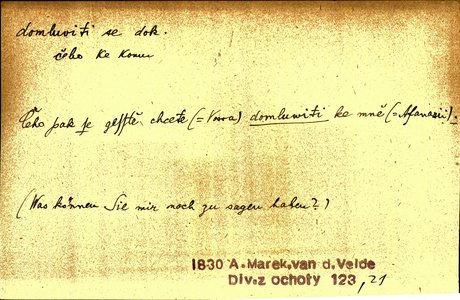 domluwiti se dok.
čeho ke komu
Čeho pak se gesstě chcete (= Vowa) domluwiti ke mně (= Afanasii).
(Was können Sie mir noch zu sagen haben?)
1830 A.Marek,van d.Velde
Div.z ochoty 123, 21